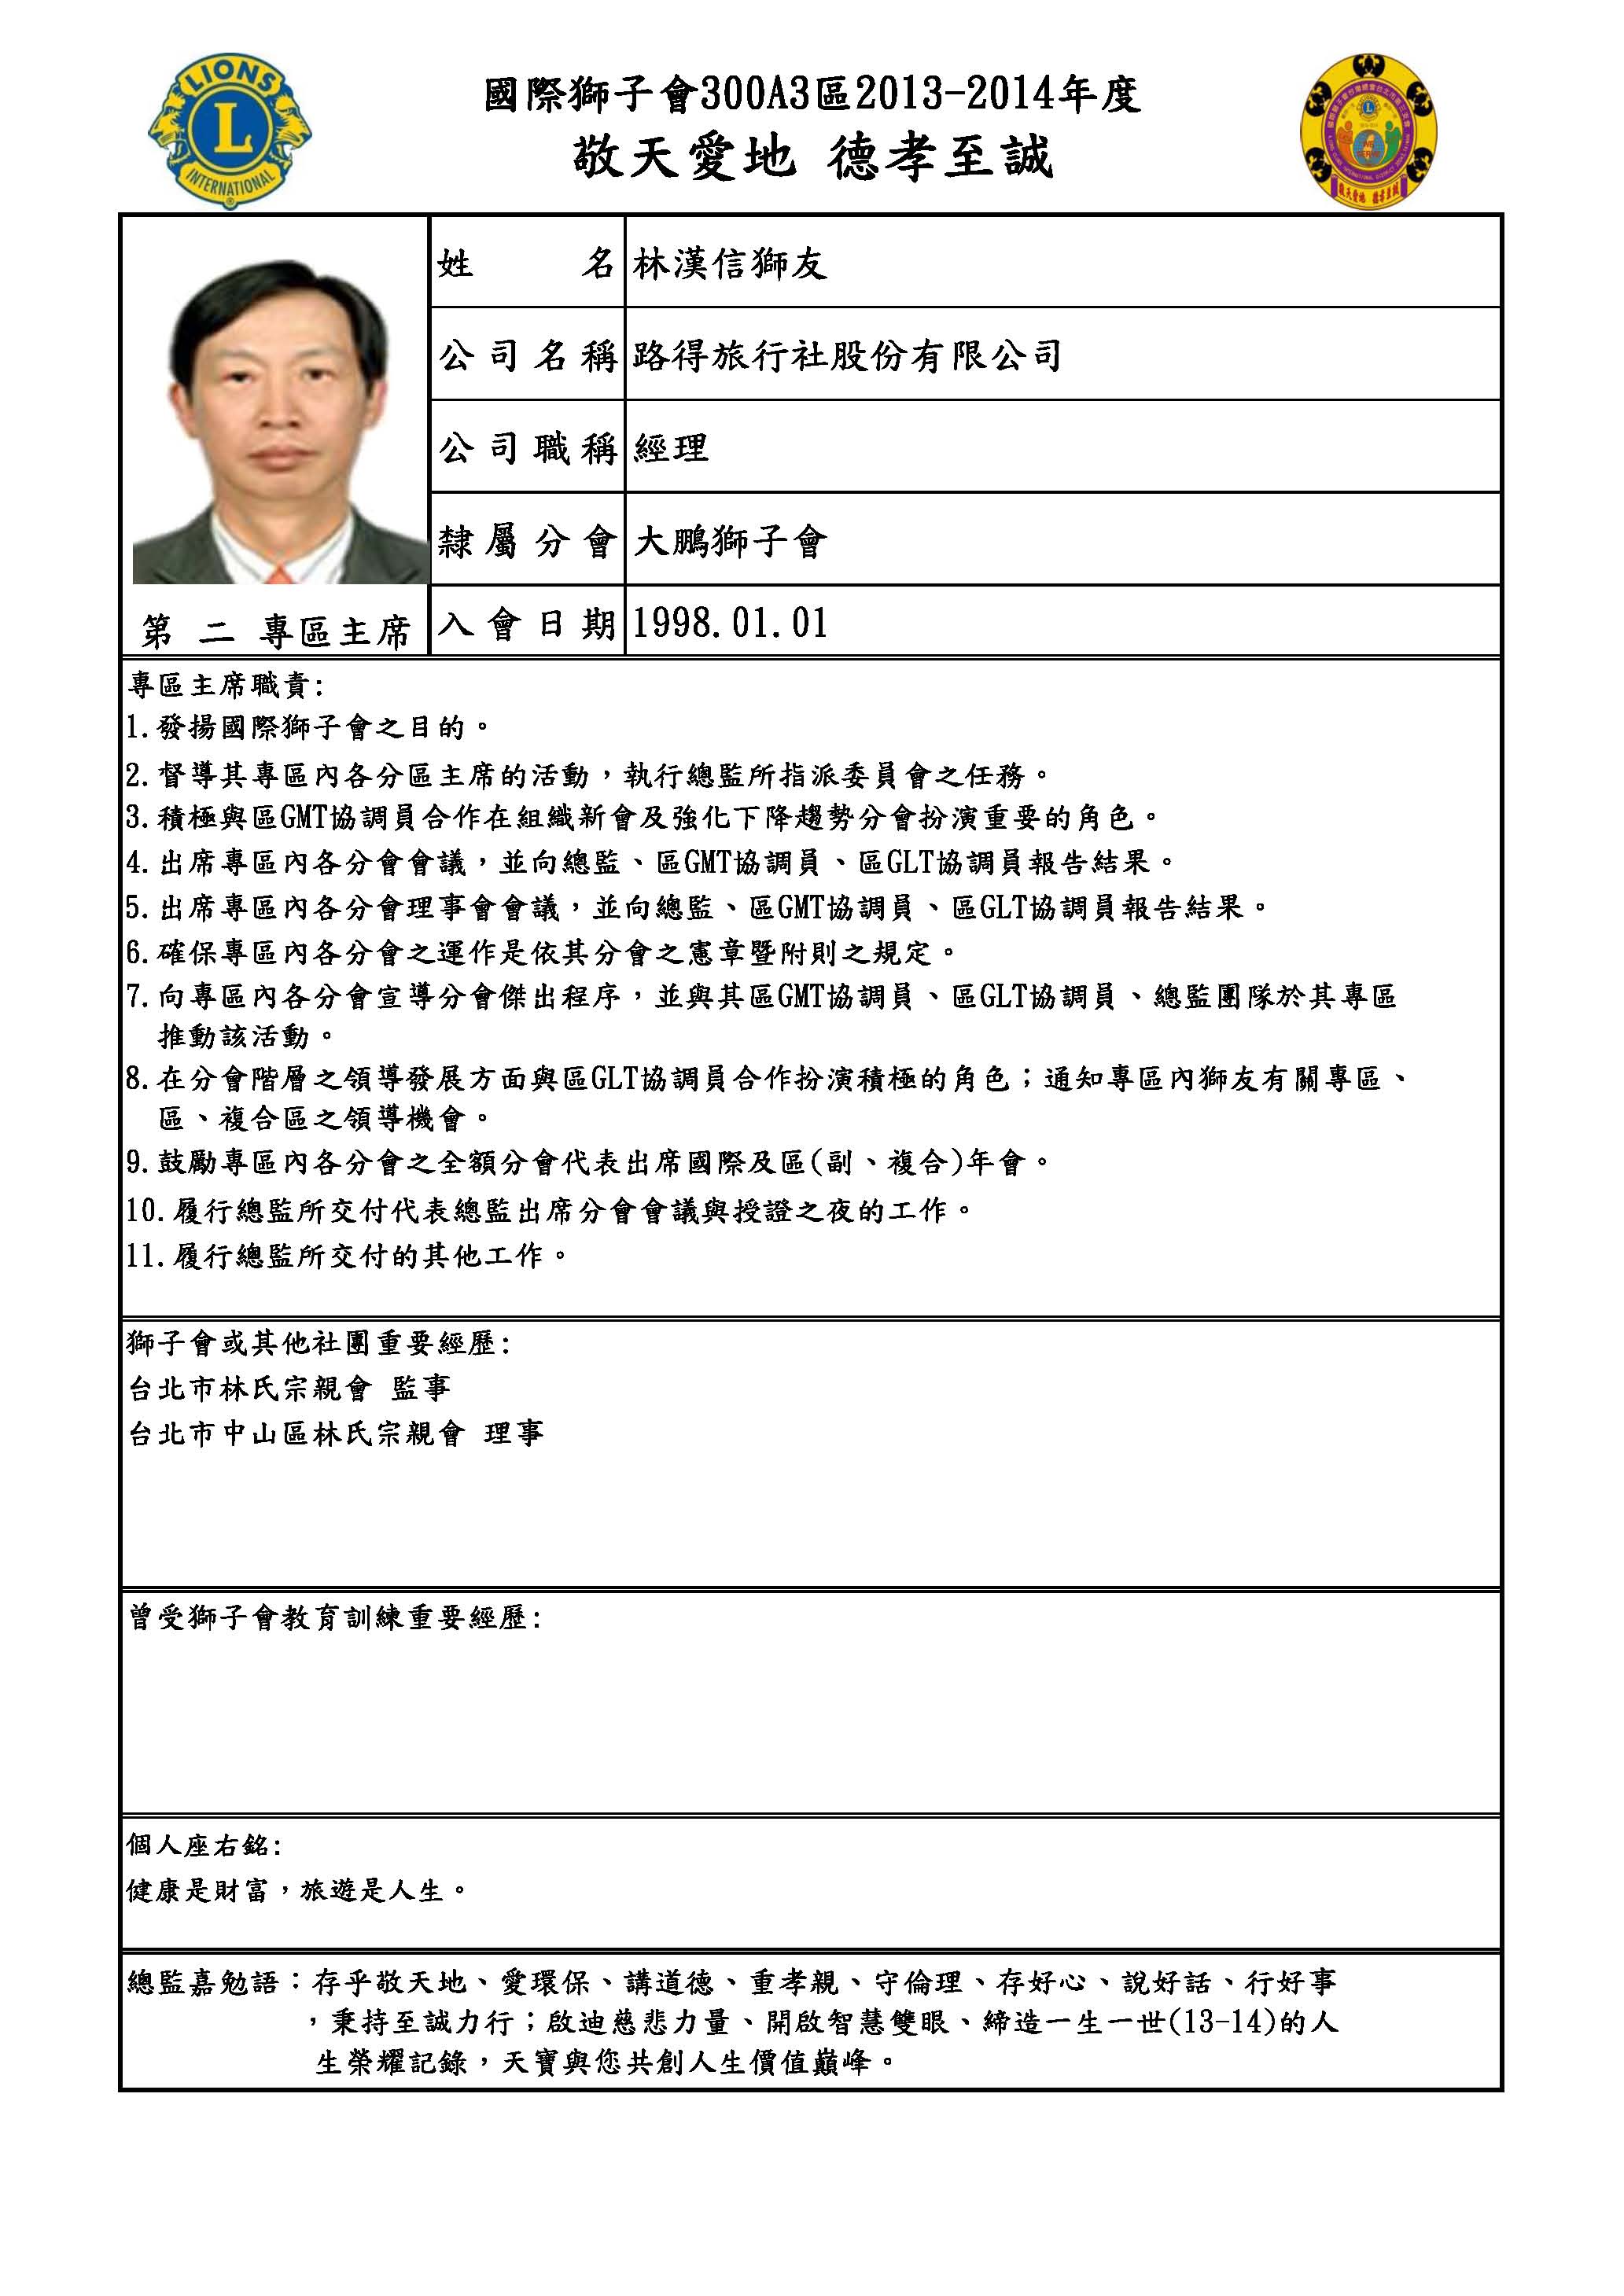 LIONS
L
INTERNATIONAL
®
國際獅子會300A3區2013-2014年度
敬天愛地 德孝至誠
敬天愛地 德孝至誠
姓 名 林漢信獅友
公司名稱 路得旅行社股份有限公司
公司職稱 經理
隸屬分會 大鵬獅子會
第 二 專區主席
入會日期 1998.01.01
專區主席職責:
1.發揚國際獅子會之目的。
2.督導其專區內各分區主席的活動，執行總監所指派委員會之任務。
3.積極與區GMT協調員合作在組織新會及強化下降趨勢分會扮演重要的角色。
4.出席專區內各分會會議，並向總監、區GMT協調員、區GLT協調員報告結果。
5.出席專區內各分會理事會會議，並向總監、區GMT協調員、區GLT協調員報告結果。
6.確保專區內各分會之運作是依其分會之憲章暨附則之規定。
7.向專區內各分會宣導分會傑出程序，並與其區GMT協調員、區GLT協調員、總監團隊於其專區
推動該活動。
8.在分會階層之領導發展方面與區GLT協調員合作扮演積極的角色；通知專區內獅友有關專區、
區、複合區之領導機會。
9.鼓勵專區內各分會之全額分會代表出席國際及區(副、複合)年會。
10.履行總監所交付代表總監出席分會會議與授證之夜的工作。
11.履行總監所交付的其他工作。
獅子會或其他社團重要經歷:
台北市林氏宗親會 監事
台北市中山區林氏宗親會 理事
曾受獅子會教育訓練重要經歷:
個人座右銘:
健康是財富，旅遊是人生。
總監嘉勉語：存乎敬天地、愛環保、講道德、重孝親、守倫理、存好心、說好話、行好事
，秉持至誠力行；啟迪慈悲力量、開啟智慧雙眼、締造一生一世(13-14)的人
生榮耀記錄，天寶與您共創人生價值巔峰。